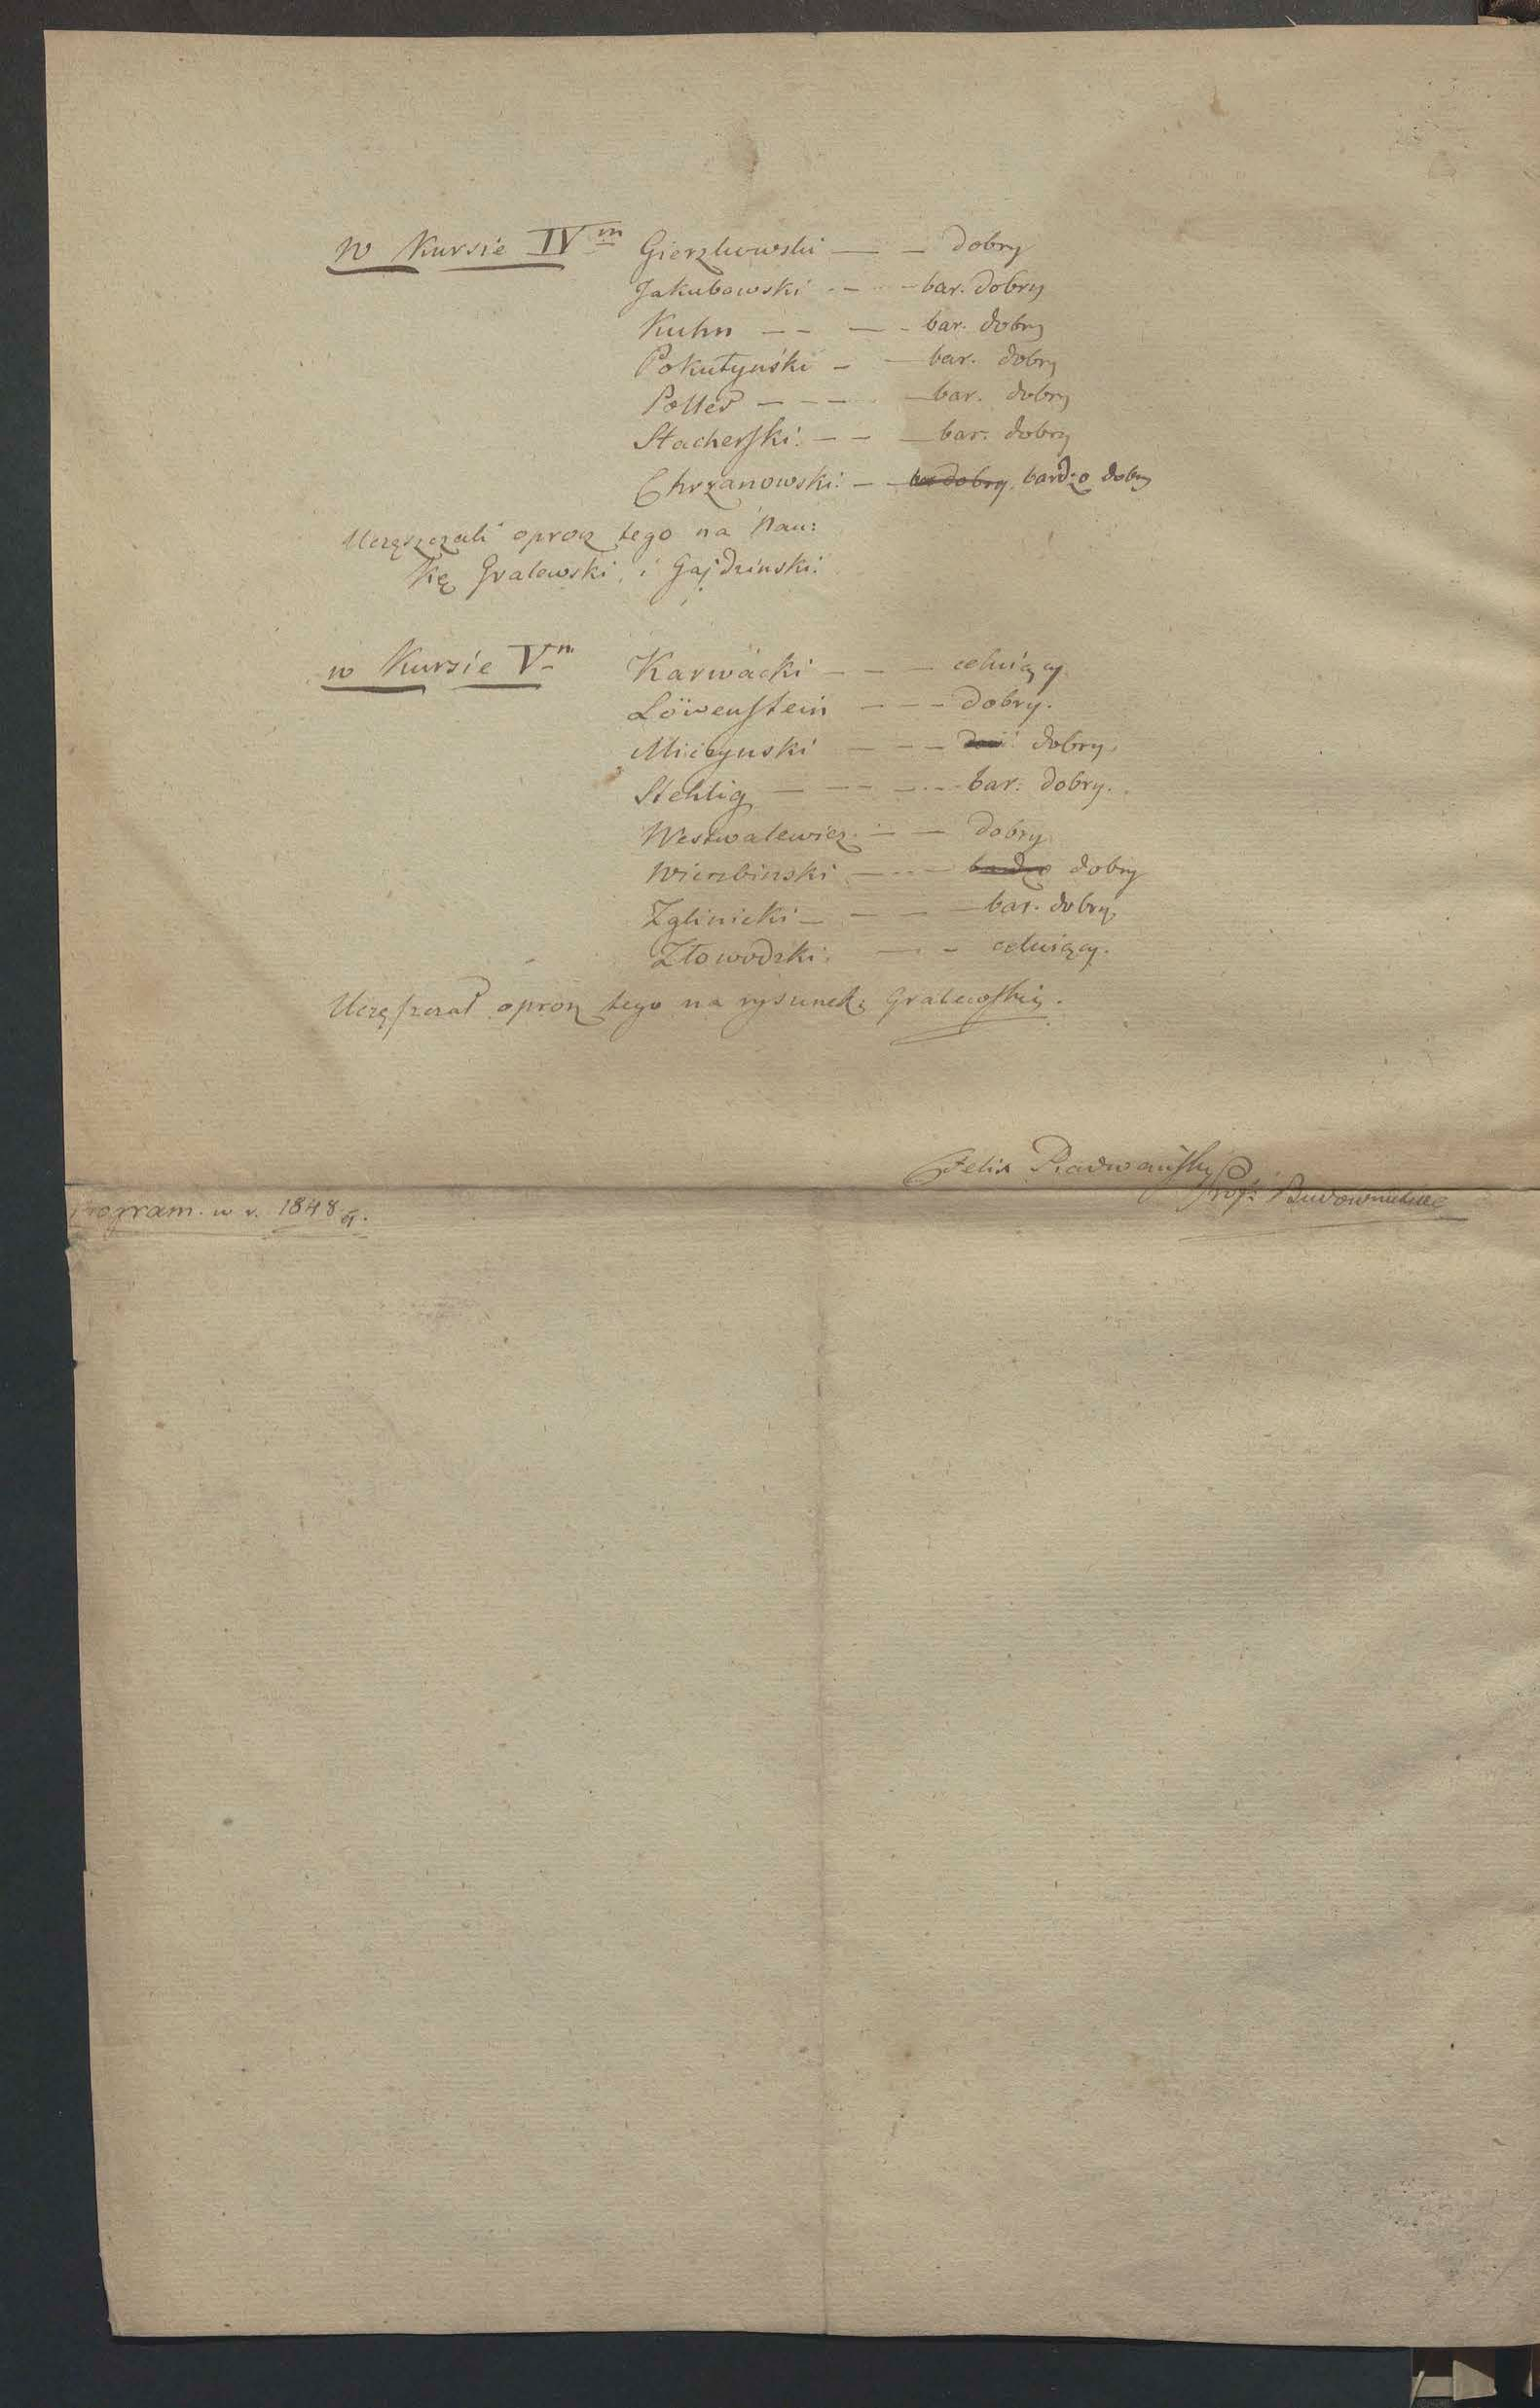 W Kursie IV<sup>m</sup> Gierzkowski — — dobry
Jakubowski — — bar. dobry
Kuhn — — — bar. dobry
Pokutyński — — bar. dobry
Polles — — — — bar. dobry
Stacherski: — — — bar: dobry
Chrzanowski: — — bar dobry, bardzo dobry
Uczęszczali oprocz tego na Nau:
kę Gralewski, i Gajdzinski.
w Kursie V<sup>m</sup> Karwacki — — — celuiący
Löwenstein — — — dobry.
Miczynski — — — dobry.
Stehlig — — — — bar: dobry.
Westwalewicz. — — dobry
Wierzbinski — — — bardzo dobry
Zglinicki — — — — bar. dobry,
Złowodzki. — — celuiący.
Uczęszczał oprocz tego na rysunek; Gralewski.
Felix Radwański
Prof: Budownictwa
Program. w r. 1848